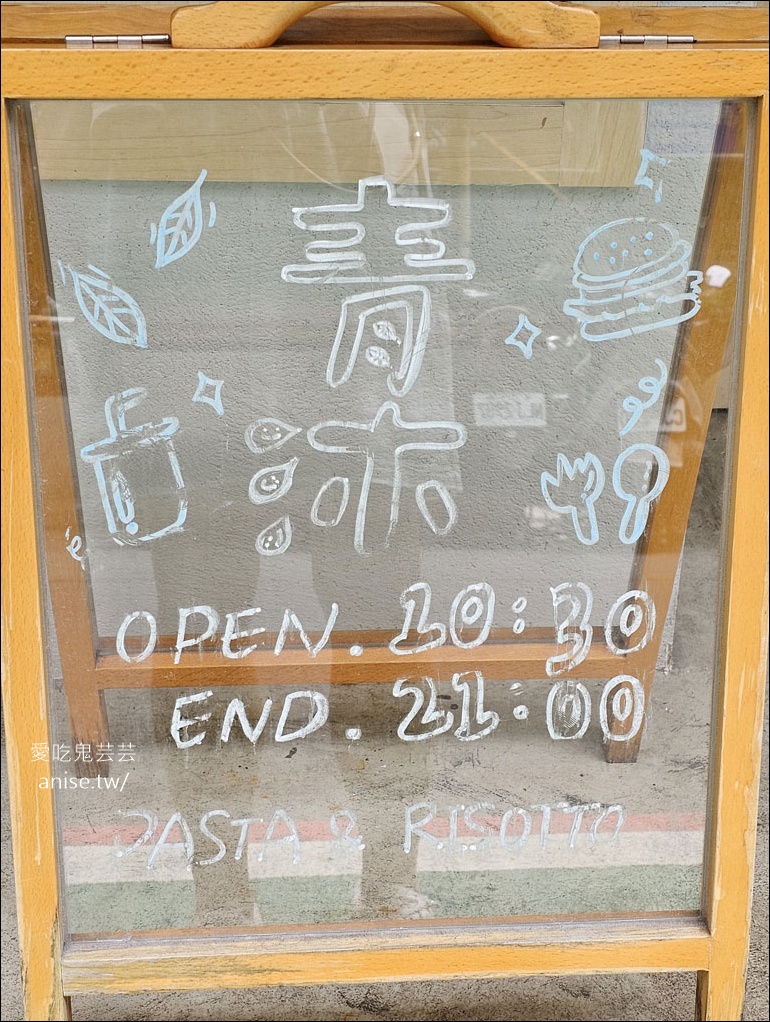 青
沐
OPEN. 10:30
END. 21:00
愛吃鬼芸芸
anise.tw/
PASTA & RISOTTO